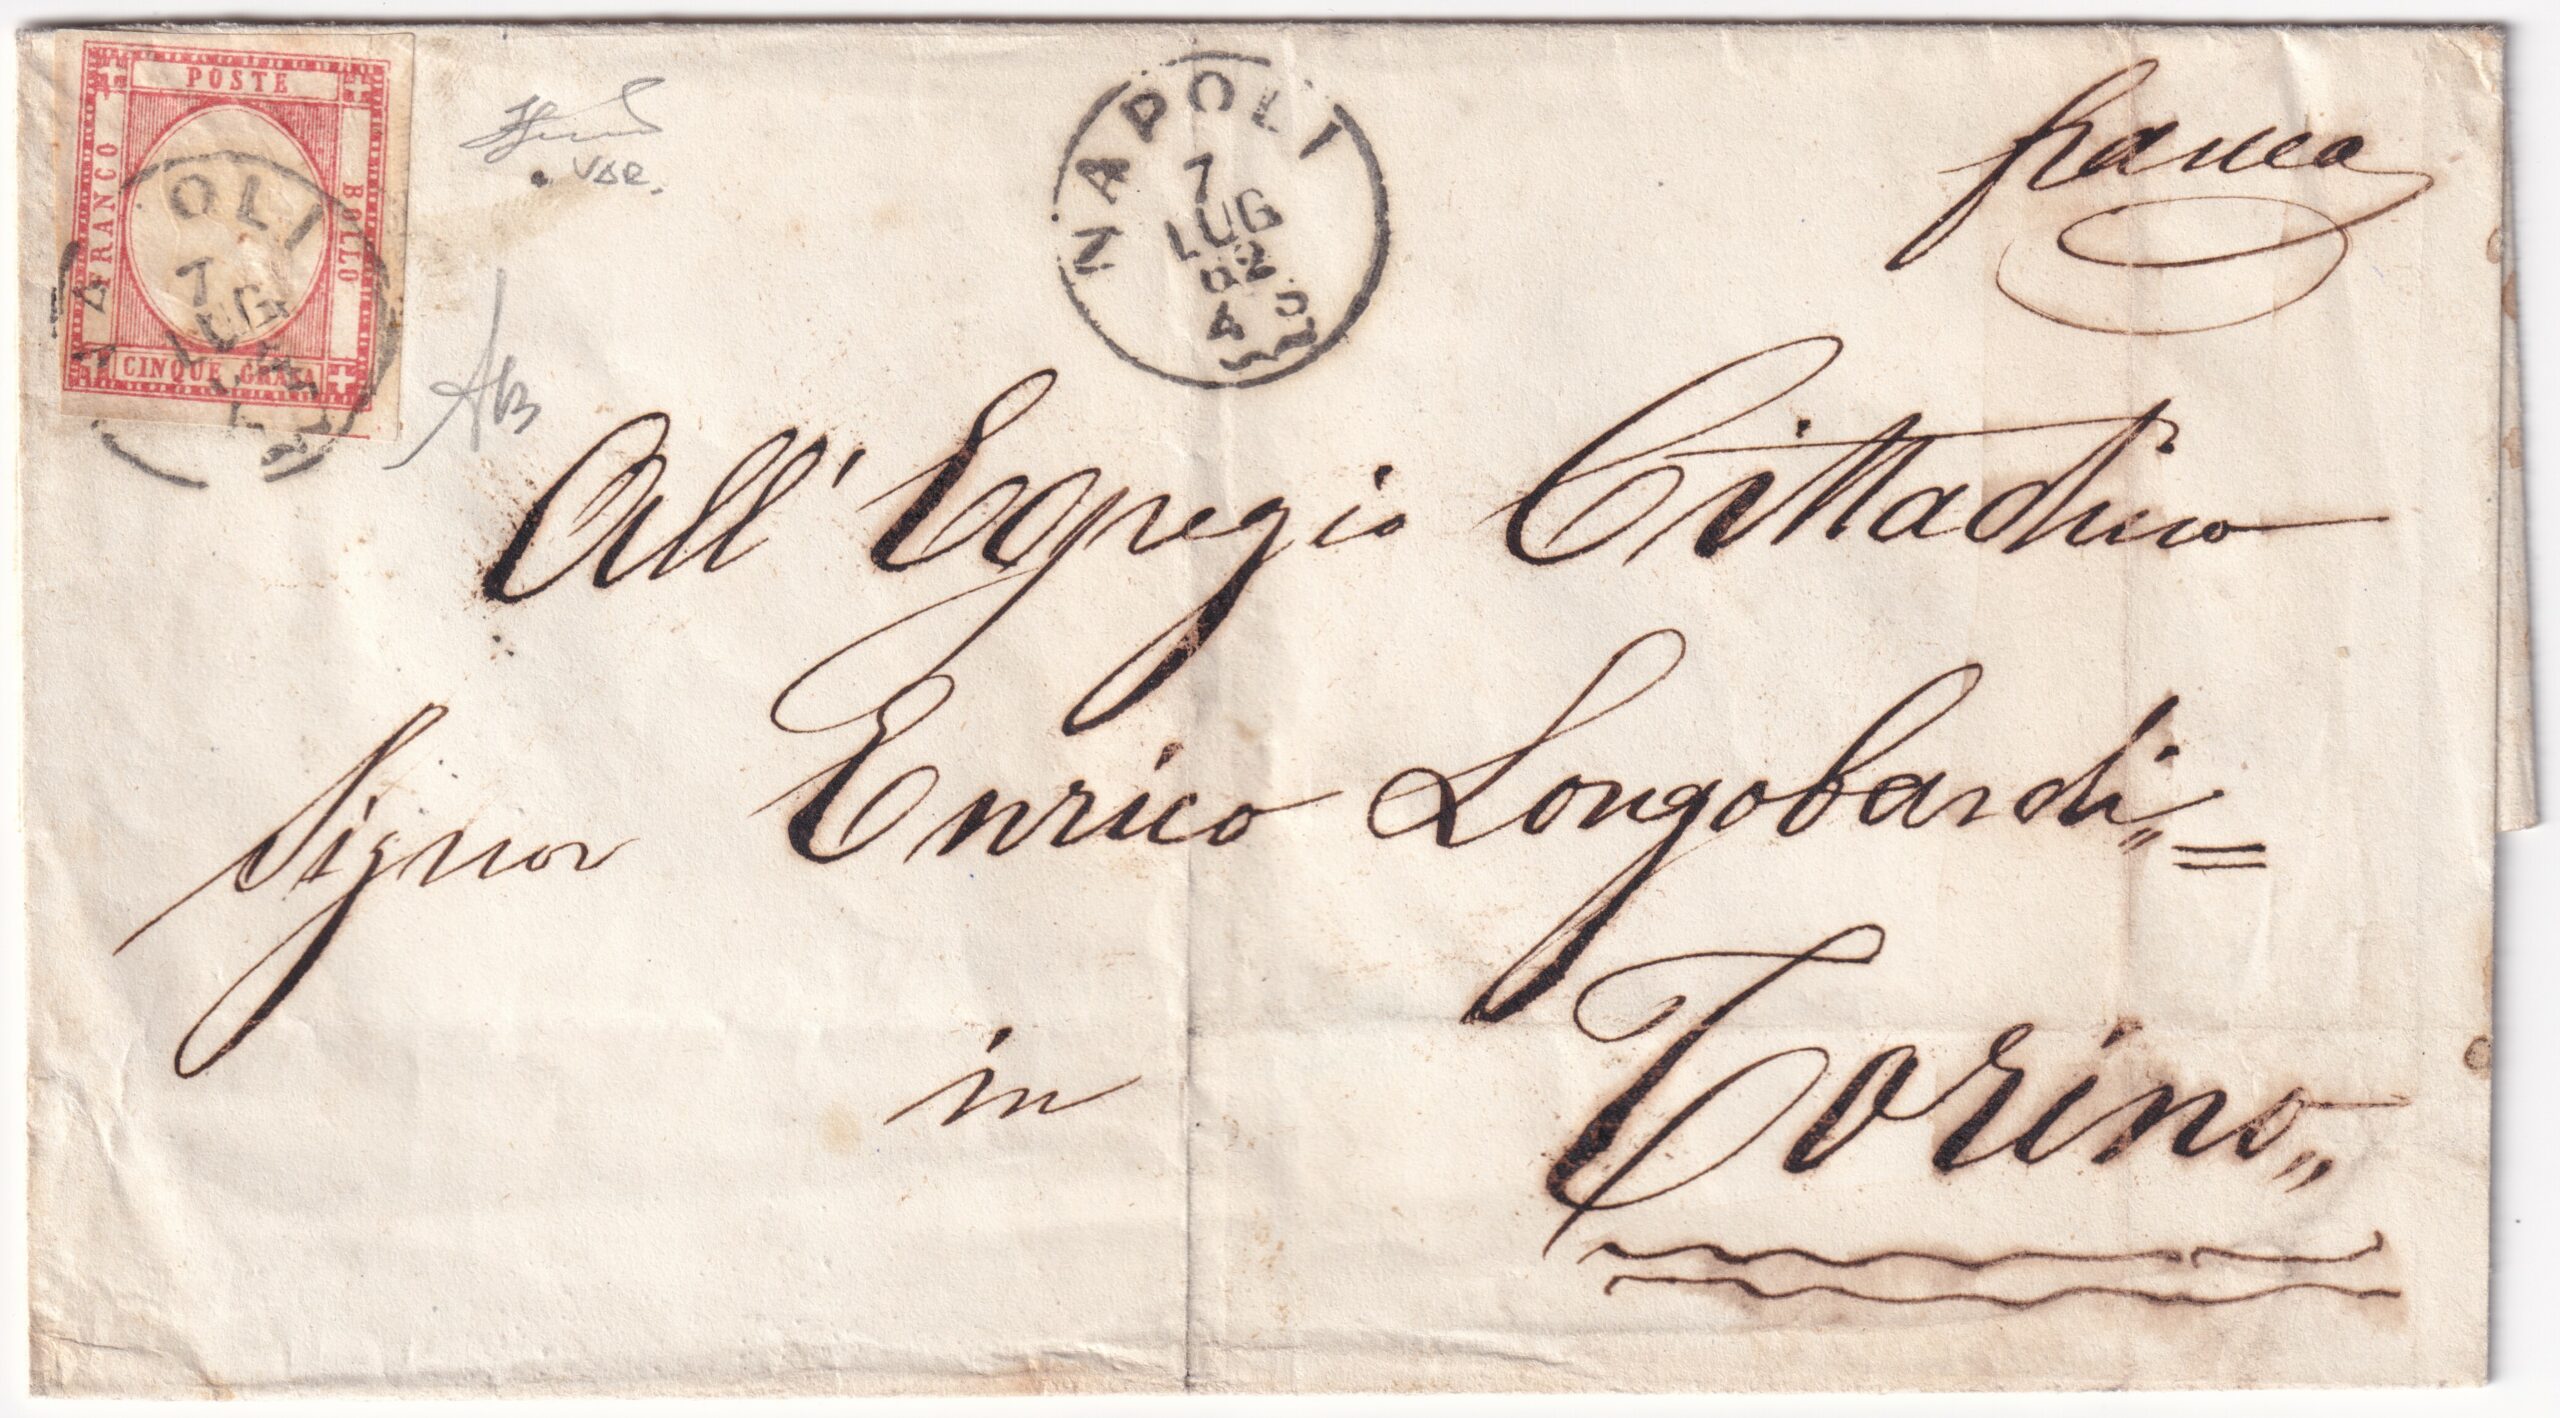 POSTE
FRANCO
BOLLO
CINQUE GRANA
OLI
7
LUG
NAPOLI
7
LUG
62
4 S
franca
AB
All'Egregio Cittadino
Signor Enrico Longobardi„=
in
Torino„